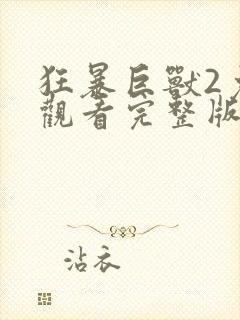 狂暴巨獸2
觀看完整版
沾衣